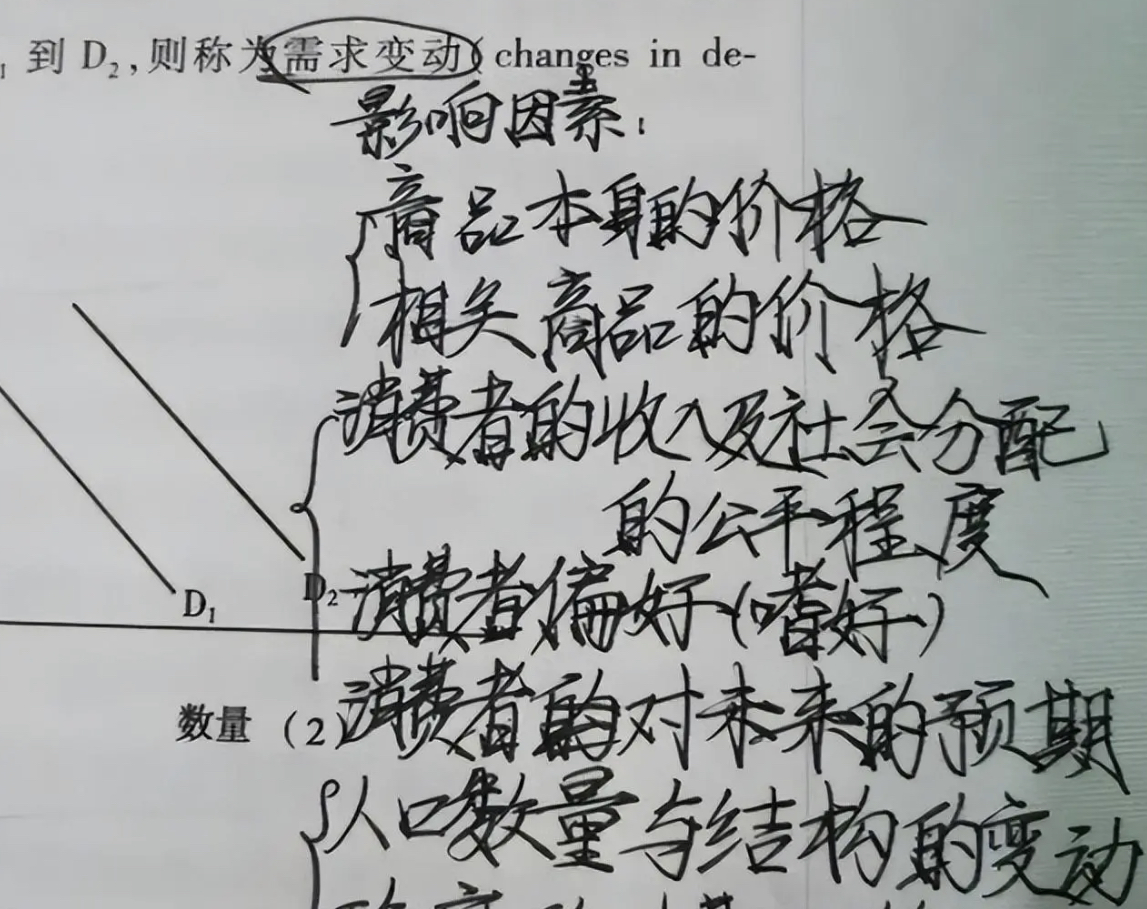 到 D₂,则称为需求变动( changes in de-
影响因素:
商品本身的价格
相关商品的价格
消费者的收入及社会分配
的公平程度
D₁
D₂
消费者偏好(嗜好)
数量 (2)
消费者的对未来的预期
人口数量与结构的变动